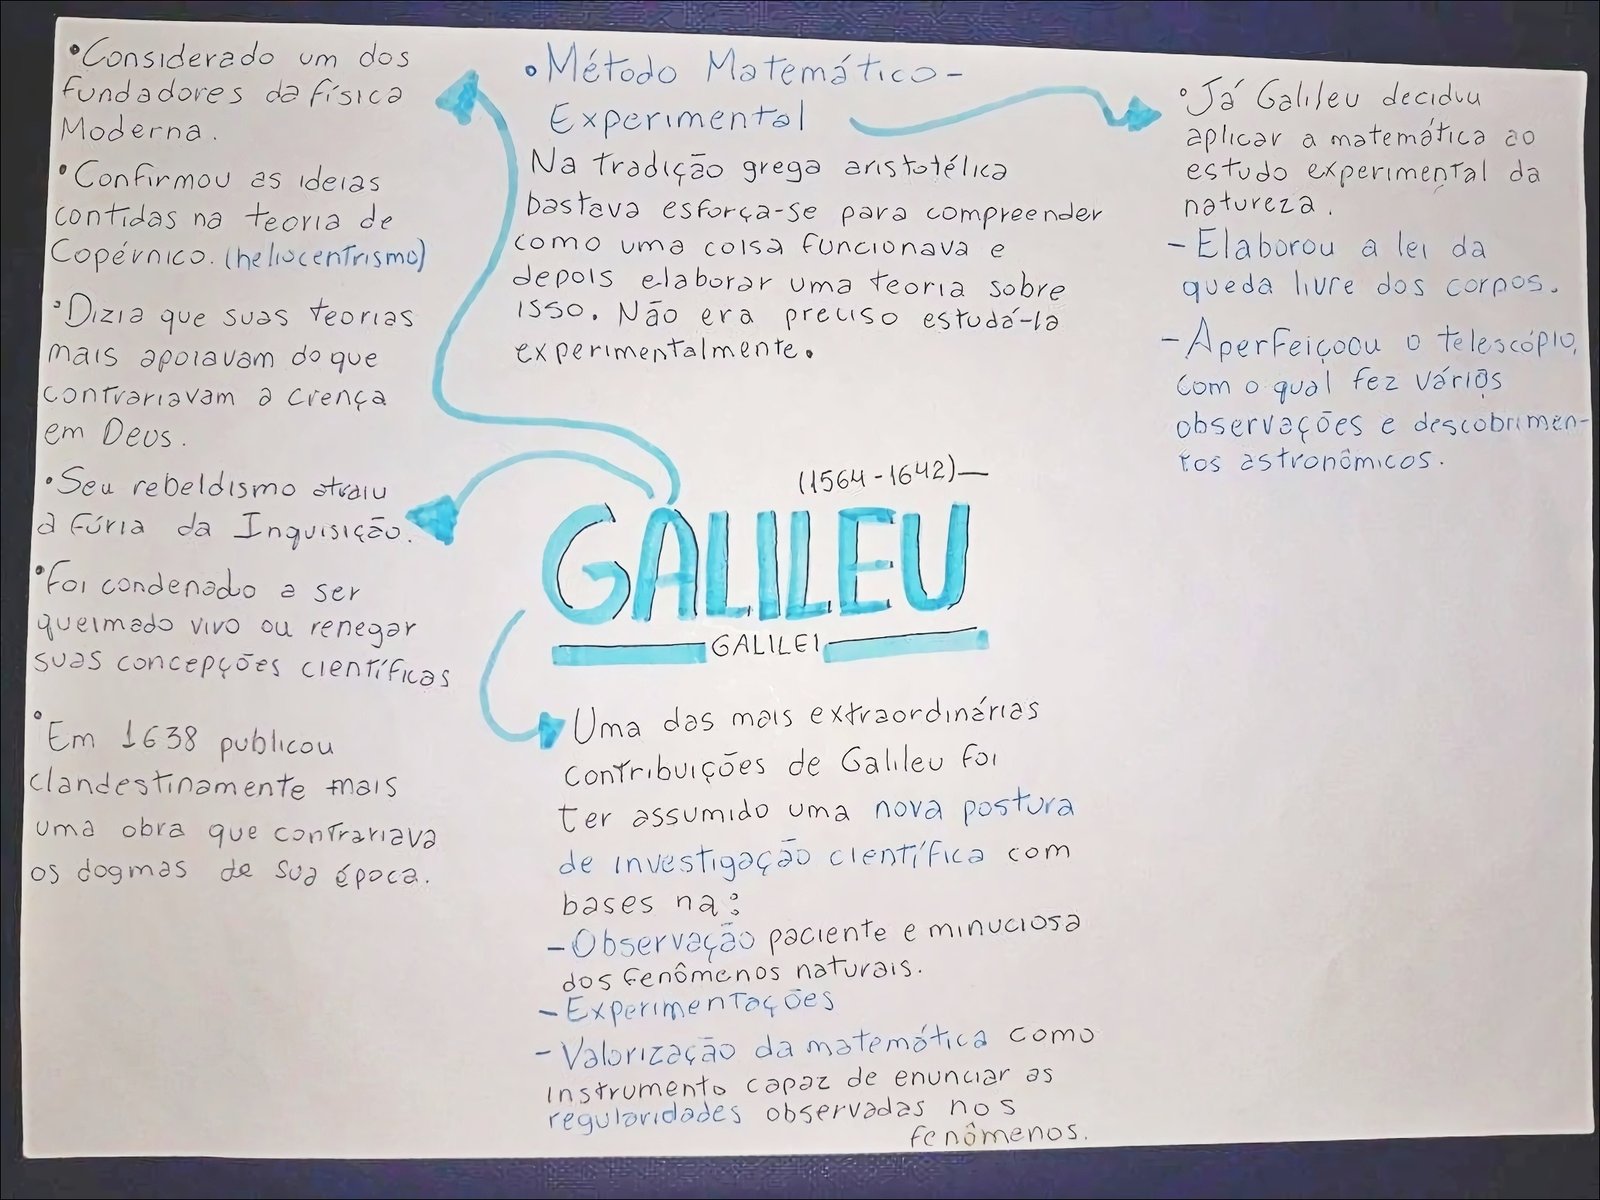 •Considerado um dos
fundadores da física
Moderna.
•Confirmou as ideias
contidas na teoria de
Copérnico. (heliocentrismo)
•Dizia que suas teorias
mais apoiavam do que
contrariavam a crença
em Deus.
•Seu rebeldismo atraiu
a fúria da Inquisição.
•Foi condenado a ser
queimado vivo ou renegar
suas concepções científicas
•Em 1638 publicou
clandestinamente mais
uma obra que contrariava
os dogmas de sua época.
•Método Matemático-
Experimental
Na tradição grega aristotélica
bastava esforça-se para compreender
como uma coisa funcionava e
depois elaborar uma teoria sobre
isso. Não era preciso estudá-la
experimentalmente.
•Já Galileu decidiu
aplicar a matemática ao
estudo experimental da
natureza.
-Elaborou a lei da
queda livre dos corpos.
-Aperfeiçoou o telescópio,
com o qual fez vários
observações e descobrimen-
tos astronômicos.
(1564-1642)—
GALILEU
GALILEI
Uma das mais extraordinárias
contribuições de Galileu foi
ter assumido uma nova postura
de investigação científica com
bases na:
-Observação paciente e minuciosa
dos fenômenos naturais.
-Experimentações
-Valorização da matemática como
instrumento capaz de enunciar as
regularidades observadas nos
fenômenos.